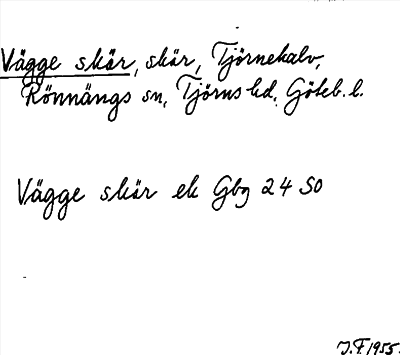 Vägge skär, skär, Tjörnekalv,
Rönnängs sn, Tjörns hd, Göteb. l.
Vägge skär ek Gbg 24 SO
J. F. 1955.